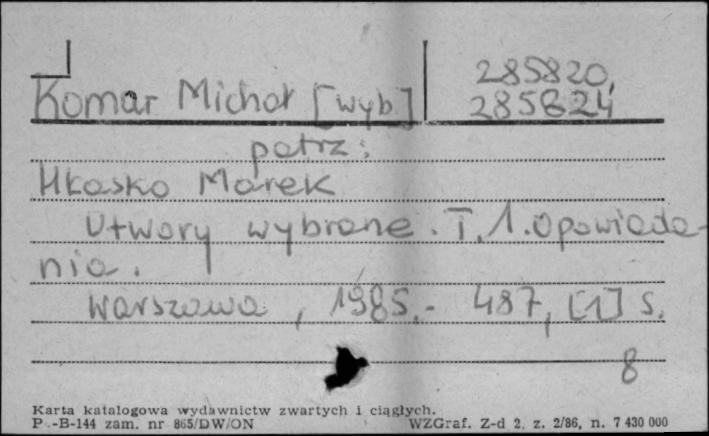 285820,
Komar Michał [wyb.] 285824
patrz:
Hłasko Marek
Utwory wybrane. T. 1. Opowiada-
nia.
Warszawa, 1985.- 487, [1] s.
8
Karta katalogowa wydawnictw zwartych i ciągłych.
P.-B-144 zam. nr 865/DW/ON WZGraf. Z-d 2, z. 2/86, n. 7 430 000